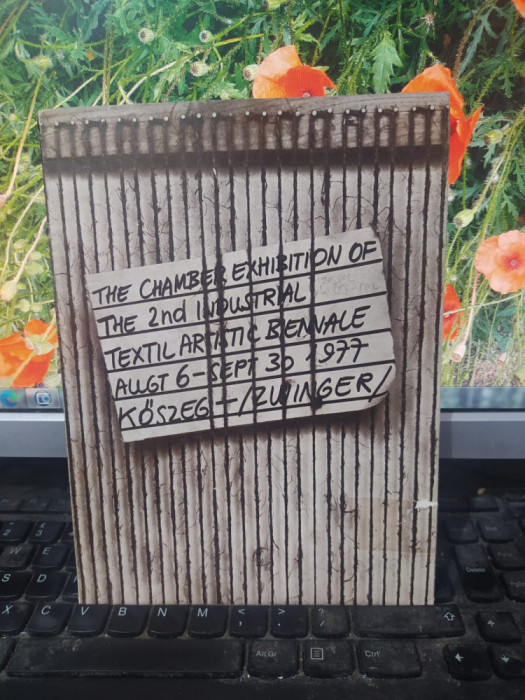 THE CHAMBER EXHIBITION OF
THE 2nd INDUSTRIAL
TEXTIL ARTISTIC BIENNALE
AUGT 6-SEPT 30 1977
KŐSZEG-/ZWINGER/
W E
S D
X C V B N M < , > . ? /
Alt Gr Ctrl
Delete